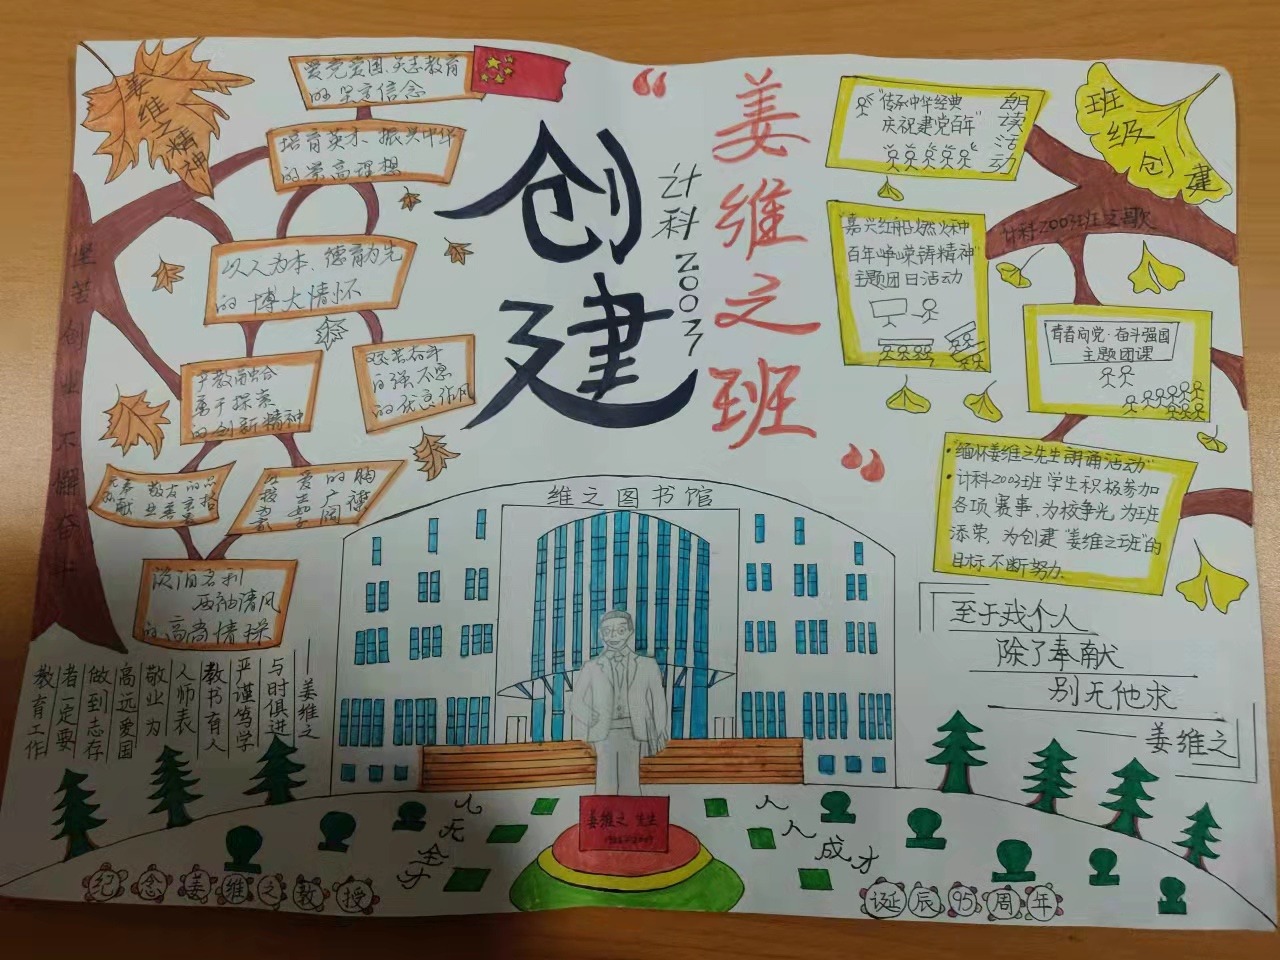 创建
“姜维之班”
计科2003
姜维之精神
爱党爱国、矢志教育
的坚定信念
培育英才、振兴中华
的崇高理想
以人为本、德育为先
的博大情怀
产教融合
勇于探索
的创新精神
艰苦奋斗
自强不息
的优良作风
淡泊名利
两袖清风
的高尚情操
坚苦创业不懈奋斗
教育工作
者一定要
做到志存
高远爱国
敬业为
人师表
教书育人
严谨笃学
与时俱进
——姜维之
班级创建
“传承中华经典
庆祝建党百年”
朗读活动
计科2003班班之歌
“嘉兴红船燃火种
百年峥嵘铸精神”
主题团日活动
青春向党·奋斗强国
主题团课
“缅怀姜维之先生朗诵活动”
计科2003班学生积极参加
各项赛事,为校争光,为班
添荣,为创建“姜维之班”的
目标不断努力.
至于我个人
除了奉献
别无他求
——姜维之
维之图书馆
姜维之 先生
人无全才
人人成才
纪念姜维之教授
诞辰95周年